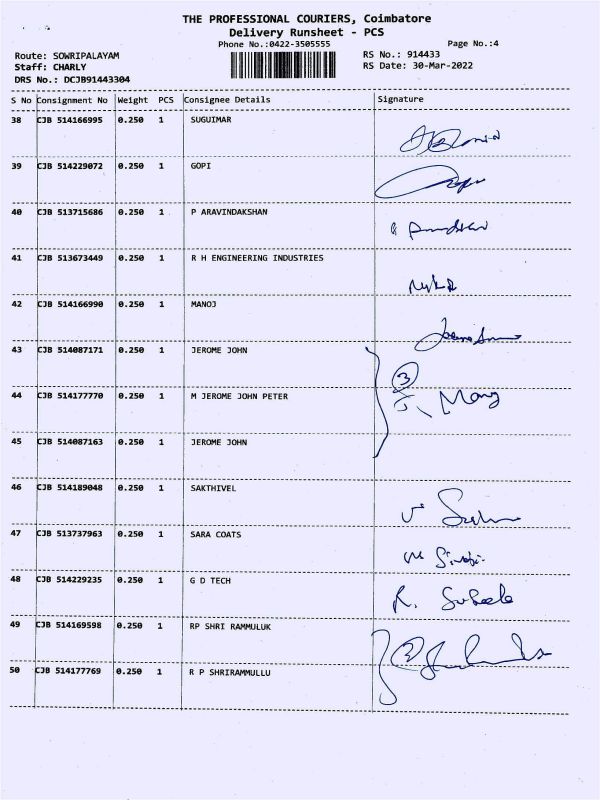 THE PROFESSIONAL COURIERS, Coimbatore
Delivery Runsheet - PCS
Phone No.:0422-3505555
Page No.:4
Route: SOWRIPALAYAM
RS No.: 914433
Staff: CHARLY
RS Date: 30-Mar-2022
DRS No.: DCJB91443304
S No Consignment No Weight PCS Consignee Details Signature
38 CJB 514166995 0.250 1 SUGUIMAR
39 CJB 514229072 0.250 1 GOPI
40 CJB 513715686 0.250 1 P ARAVINDAKSHAN
41 CJB 513673449 0.250 1 R H ENGINEERING INDUSTRIES
42 CJB 514166990 0.250 1 MANOJ
43 CJB 514087171 0.250 1 JEROME JOHN
3
44 CJB 514177770 0.250 1 M JEROME JOHN PETER
J. Mary
45 CJB 514087163 0.250 1 JEROME JOHN
46 CJB 514189048 0.250 1 SAKTHIVEL
47 CJB 513737963 0.250 1 SARA COATS
48 CJB 514229235 0.250 1 G D TECH
R.
49 CJB 514169598 0.250 1 RP SHRI RAMMULUK
2
50 CJB 514177769 0.250 1 R P SHRIRAMMULLU